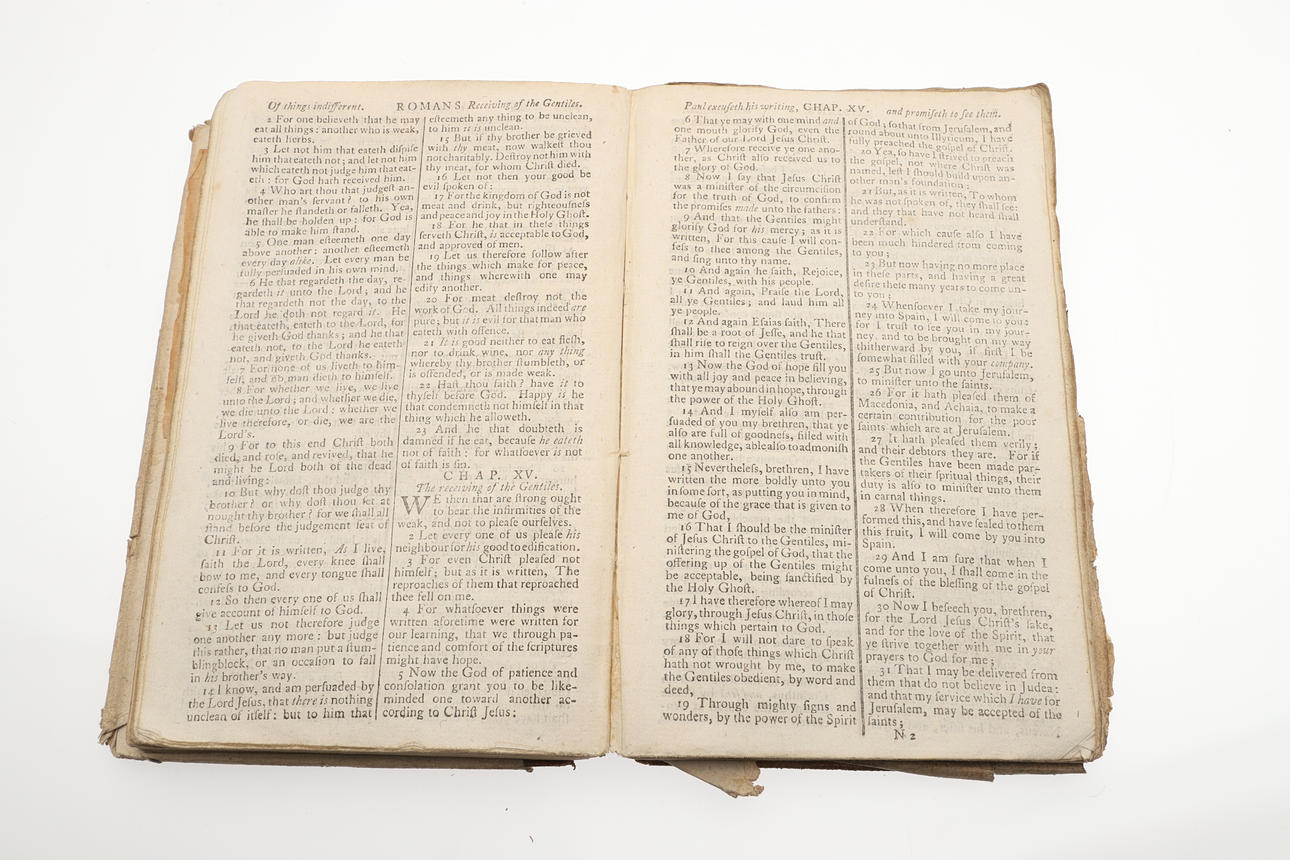 Of things indifferent. ROMANS Receiving of the Gentiles.
2 For one believeth that he may
eat all things: another who is weak,
eateth herbs.
3 Let not him that eateth diſpiſe
him that eateth not; and let not him
which eateth not judge him that eat-
eth: for God hath received him.
4 Who art thou that judgeſt an-
other man's ſervant? to his own
maſter he ſtandeth or falleth. Yea,
he ſhall be holden up: for God is
able to make him ſtand.
5 One man eſteemeth one day
above another: another eſteemeth
every day alike. Let every man be
fully perſuaded in his own mind.
6 He that regardeth the day, re-
gardeth it unto the Lord; and he
that regardeth not the day, to the
Lord he doth not regard it. He
that eateth, eateth to the Lord, for
he giveth God thanks; and he that
eateth not, to the Lord he eateth
not, and giveth God thanks.
7 For none of us liveth to him-
ſelf, and no man dieth to himſelf.
8 For whether we live, we live
unto the Lord; and whether we die,
we die unto the Lord: whether we
live therefore, or die, we are the
Lord's.
9 For to this end Chriſt both
died, and roſe, and revived, that he
might be Lord both of the dead
and living:
10 But why doſt thou judge thy
brother? or why doſt thou ſet at
nought thy brother? for we ſhall all
ſtand before the judgement ſeat of
Chriſt.
11 For it is written, As I live,
ſaith the Lord, every knee ſhall
bow to me, and every tongue ſhall
confeſs to God.
12 So then every one of us ſhall
give account of himſelf to God.
13 Let us not therefore judge
one another any more: but judge
this rather, that no man put a ſtum-
blingblock, or an occaſion to fall
in his brother's way.
14 I know, and am perſuaded by
the Lord Jeſus, that there is nothing
unclean of itſelf: but to him that
eſteemeth any thing to be unclean,
to him it is unclean.
15 But if thy brother be grieved
with thy meat, now walkeſt thou
not charitably. Deſtroy not him with
thy meat, for whom Chriſt died.
16 Let not then your good be
evil ſpoken of:
17 For the kingdom of God is not
meat and drink, but righteouſneſs
and peace and joy in the Holy Ghoſt.
18 For he that in theſe things
ſerveth Chriſt, is acceptable to God,
and approved of men.
19 Let us therefore follow after
the things which make for peace,
and things wherewith one may
edify another.
20 For meat deſtroy not the
work of God. All things indeed are
pure; but it is evil for that man who
eateth with offence.
21 It is good neither to eat fleſh,
nor to drink wine, nor any thing
whereby thy brother ſtumbleth, or
is offended, or is made weak.
22 Haſt thou faith? have it to
thyſelf before God. Happy is he
that condemneth not himſelf in that
thing which he alloweth.
23 And he that doubteth is
damned if he eat, becauſe he eateth
not of faith: for whatſoever is not
of faith is ſin.
CHAP. XV.
The receiving of the Gentiles.
WE then that are ſtrong ought
to bear the infirmities of the
weak, and not to pleaſe ourſelves.
2 Let every one of us pleaſe his
neighbour for his good to edification.
3 For even Chriſt pleaſed not
himſelf; but as it is written, The
reproaches of them that reproached
thee fell on me.
4 For whatſoever things were
written aforetime were written for
our learning, that we through pa-
tience and comfort of the ſcriptures
might have hope.
5 Now the God of patience and
conſolation grant you to be like-
minded one toward another ac-
cording to Chriſt Jeſus:
Paul excuſeth his writing, CHAP. XV. and promiſeth to ſee them.
6 That ye may with one mind and
one mouth glorify God, even the
Father of our Lord Jeſus Chriſt.
7 Wherefore receive ye one ano-
ther, as Chriſt alſo received us to
the glory of God.
8 Now I ſay that Jeſus Chriſt
was a miniſter of the circumciſion
for the truth of God, to confirm
the promiſes made unto the fathers:
9 And that the Gentiles might
glorify God for his mercy; as it is
written, For this cauſe I will con-
feſs to thee among the Gentiles,
and ſing unto thy name.
10 And again he ſaith, Rejoice,
ye Gentiles, with his people.
11 And again, Praiſe the Lord,
all ye Gentiles; and laud him all
ye people.
12 And again Eſaias ſaith, There
ſhall be a root of Jeſſe, and he that
ſhall riſe to reign over the Gentiles,
in him ſhall the Gentiles truſt.
13 Now the God of hope fill you
with all joy and peace in believing,
that ye may abound in hope, through
the power of the Holy Ghoſt.
14 And I myſelf alſo am per-
ſuaded of you my brethren, that ye
alſo are full of goodneſs, filled with
all knowledge, able alſo to admoniſh
one another.
15 Nevertheleſs, brethren, I have
written the more boldly unto you
in ſome ſort, as putting you in mind,
becauſe of the grace that is given to
me of God,
16 That I ſhould be the miniſter
of Jeſus Chriſt to the Gentiles, mi-
niſtering the goſpel of God, that the
offering up of the Gentiles might
be acceptable, being ſanctified by
the Holy Ghoſt.
17 I have therefore whereof I may
glory, through Jeſus Chriſt, in thoſe
things which pertain to God.
18 For I will not dare to ſpeak
of any of thoſe things which Chriſt
hath not wrought by me, to make
the Gentiles obedient, by word and
deed,
19 Through mighty ſigns and
wonders, by the power of the Spirit
of God; ſo that from Jeruſalem, and
round about unto Illyricum, I have
fully preached the goſpel of Chriſt.
20 Yea, ſo have I ſtrived to preach
the goſpel, not where Chriſt was
named, leſt I ſhould build upon an-
other man's foundation:
21 But, as it is written, To whom
he was not ſpoken of, they ſhall ſee:
and they that have not heard ſhall
underſtand.
22 For which cauſe alſo I have
been much hindered from coming
to you;
23 But now having no more place
in theſe parts, and having a great
deſire theſe many years to come un-
to you;
24 Whenſoever I take my jour-
ney into Spain, I will come to you:
for I truſt to ſee you in my jour-
ney, and to be brought on my way
thitherward by you, if firſt I be
ſomewhat filled with your company.
25 But now I go unto Jeruſalem,
to miniſter unto the ſaints.
26 For it hath pleaſed them of
Macedonia, and Achaia, to make a
certain contribution for the poor
ſaints which are at Jeruſalem.
27 It hath pleaſed them verily;
and their debtors they are. For if
the Gentiles have been made par-
takers of their ſpritual things, their
duty is alſo to miniſter unto them
in carnal things.
28 When therefore I have per-
formed this, and have ſealed to them
this fruit, I will come by you into
Spain.
29 And I am ſure that when I
come unto you, I ſhall come in the
fulneſs of the bleſſing of the goſpel
of Chriſt.
30 Now I beſeech you, brethren,
for the Lord Jeſus Chriſt's ſake,
and for the love of the Spirit, that
ye ſtrive together with me in your
prayers to God for me;
31 That I may be delivered from
them that do not believe in Judea:
and that my ſervice which I have for
Jeruſalem, may be accepted of the
ſaints;
N 2